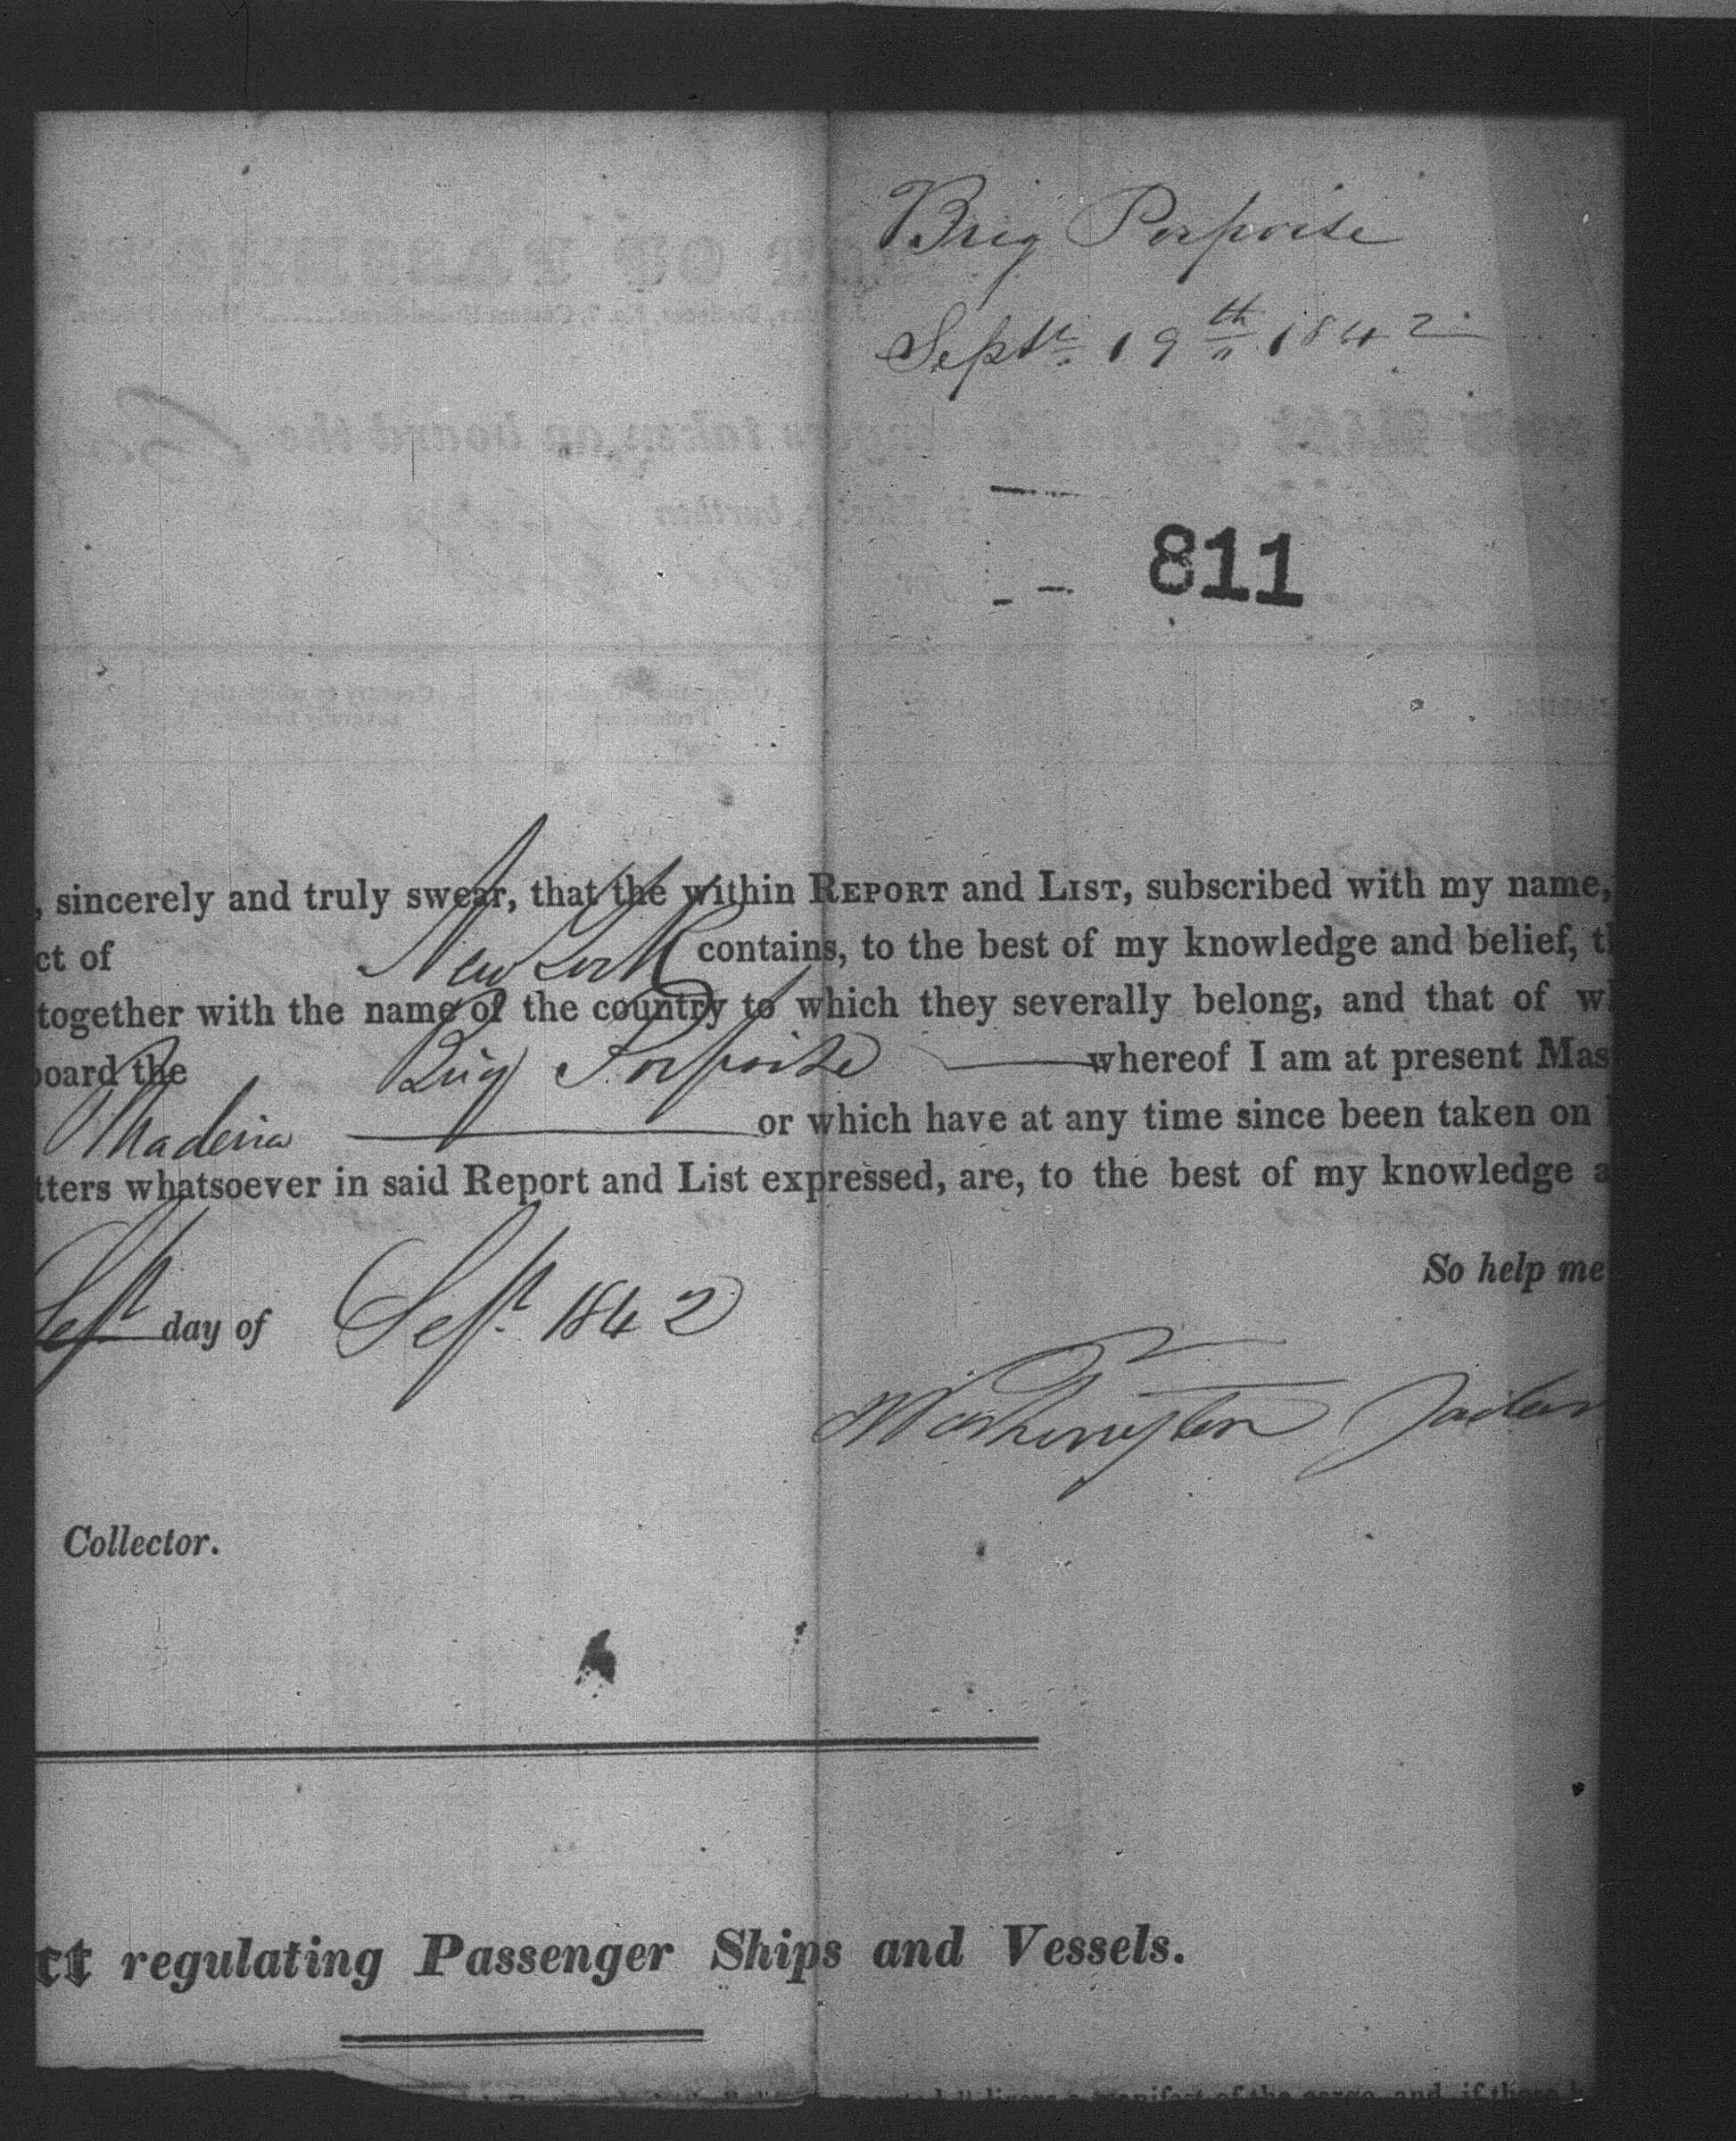 Brig Porpoise
Septr. 19th 1842
811
, sincerely and truly swear, that the within REPORT and LIST, subscribed with my name,
ct of New York contains, to the best of my knowledge and belief, t
together with the name of the country to which they severally belong, and that of w
board the Brig Porpoise whereof I am at present Mas
Madeira or which have at any time since been taken on
tters whatsoever in said Report and List expressed, are, to the best of my knowledge a
So help me
Sept day of Sept. 1842
Washington
Collector.
ct regulating Passenger Ships and Vessels.
manifest of the cargo, and, if there